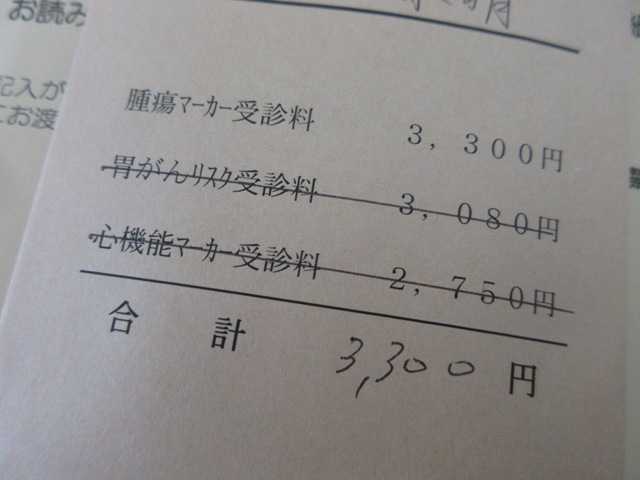 お読み
月
記入が
お渡
腫瘍マーカー受診料 3,300円
胃がんリスク受診料 3,080円
心機能マーカー受診料 2,750円
合計 3,300円